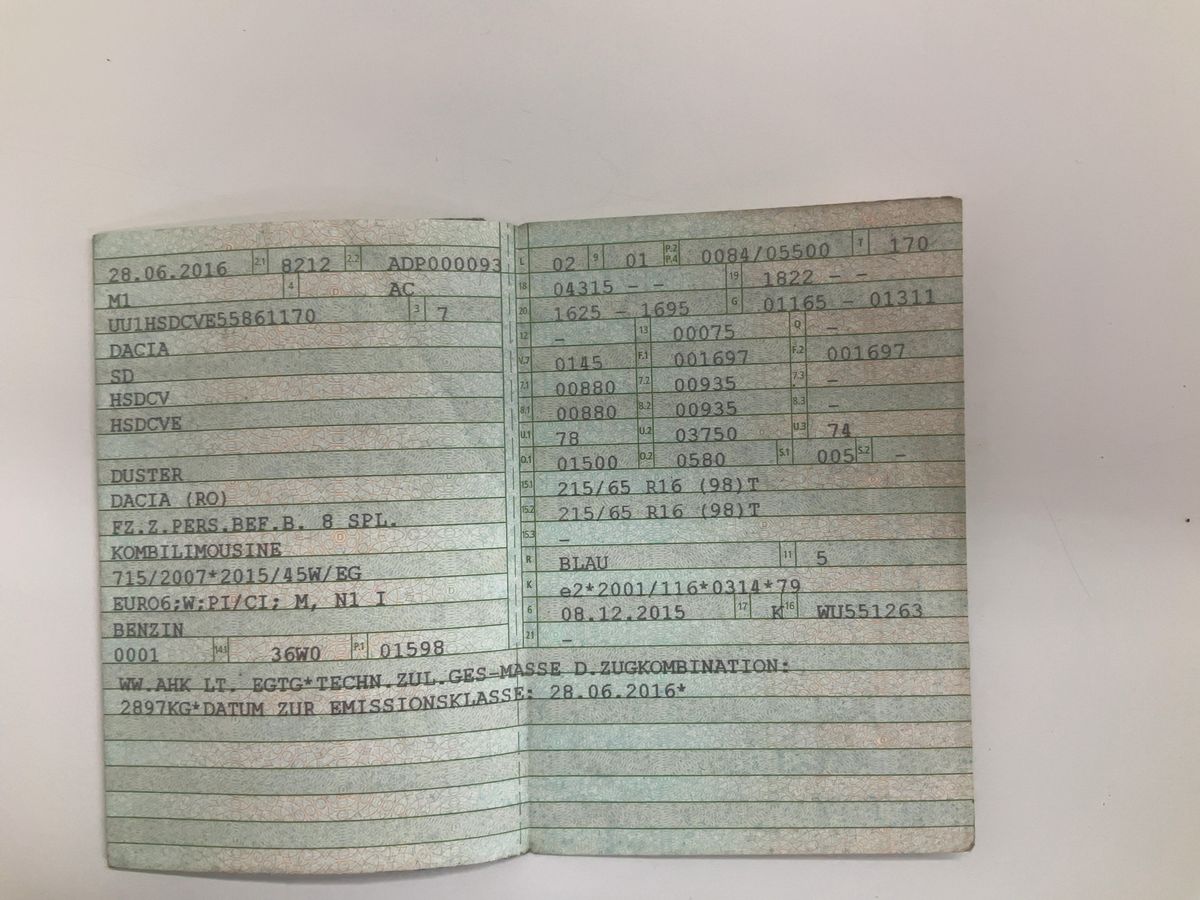 28.06.2016 2.1 8212 2.2 ADP000093
M1 4 AC
UU1HSDCVE55861170 3 7
DACIA
SD
HSDCV
HSDCVE
DUSTER
DACIA (RO)
FZ.Z.PERS.BEF.B. 8 SPL.
KOMBILIMOUSINE
715/2007*2015/45W/EG
EURO6;W;PI/CI; M, N1 I
BENZIN
0001 14.1 36W0 P.1 01598
L 02 9 01 P.2 P.4 0084/05500 T 170
18 04315 – – 19 1822 – –
20 1625 – 1695 G 01165 – 01311
12 – 13 00075 Q –
V.7 0145 F.1 001697 F.2 001697
7.1 00880 7.2 00935 7.3 –
8.1 00880 8.2 00935 8.3 –
U.1 78 U.2 03750 U.3 74
O.1 01500 O.2 0580 S.1 005 S.2 –
15.1 215/65 R16 (98)T
15.2 215/65 R16 (98)T
15.3 –
R BLAU 11 5
K e2*2001/116*0314*79
6 08.12.2015 17 K 16 WU551263
21 –
WW.AHK LT. EGTG*TECHN.ZUL.GES-MASSE D.ZUGKOMBINATION:
2897KG*DATUM ZUR EMISSIONSKLASSE: 28.06.2016*